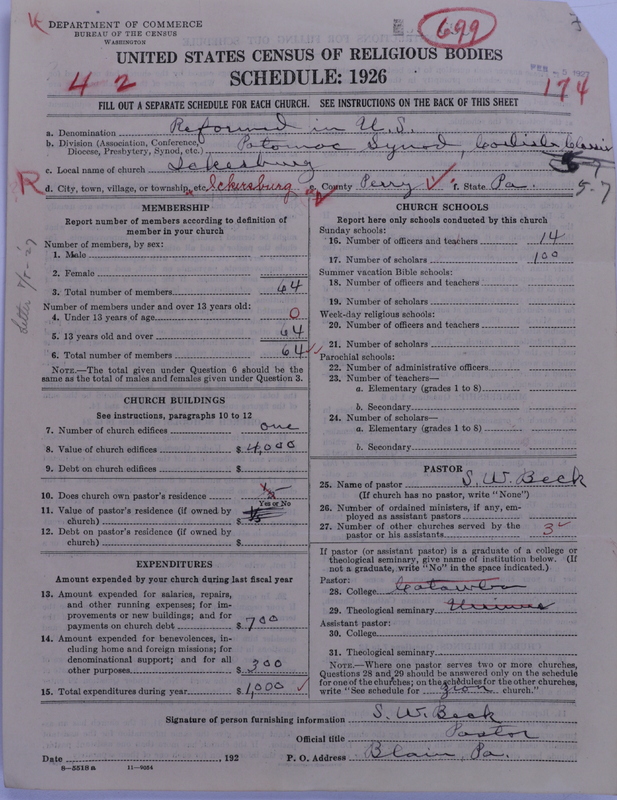 DEPARTMENT OF COMMERCE
BUREAU OF THE CENSUS
WASHINGTON
699
UNITED STATES CENSUS OF RELIGIOUS BODIES
SCHEDULE: 1926
42
174
FILL OUT A SEPARATE SCHEDULE FOR EACH CHURCH. SEE INSTRUCTIONS ON THE BACK OF THIS SHEET
a. Denomination Reformed in U.S.
b. Division (Association, Conference, Diocese, Presbytery, Synod, etc.) Potomac Synod, Carlisle Classis
c. Local name of church Ickesburg
5-7
R
d. City, town, village, or township, etc. Ickersburg e. County Perry f. State Pa.
MEMBERSHIP
Report number of members according to definition of
member in your church
Number of members, by sex:
1. Male
2. Female
3. Total number of members 64
Number of members under and over 13 years old:
4. Under 13 years of age 0
5. 13 years old and over 64
6. Total number of members 64
NOTE.—The total given under Question 6 should be the
same as the total of males and females given under Question 3.
CHURCH BUILDINGS
See instructions, paragraphs 10 to 12
7. Number of church edifices one
8. Value of church edifices $ 4,000
9. Debt on church edifices $
10. Does church own pastor's residence
Yes or No
11. Value of pastor's residence (if owned by
church) $
12. Debt on pastor's residence (if owned by
church) $
EXPENDITURES
Amount expended by your church during last fiscal year
13. Amount expended for salaries, repairs,
and other running expenses; for im-
provements or new buildings; and for
payments on church debt $ 700
14. Amount expended for benevolences, in-
cluding home and foreign missions; for
denominational support; and for all
other purposes $ 300
15. Total expenditures during year $ 1,000
CHURCH SCHOOLS
Report here only schools conducted by this church
Sunday schools:
16. Number of officers and teachers 14
17. Number of scholars 100
Summer vacation Bible schools:
18. Number of officers and teachers
19. Number of scholars
Week-day religious schools:
20. Number of officers and teachers
21. Number of scholars
Parochial schools:
22. Number of administrative officers
23. Number of teachers—
a. Elementary (grades 1 to 8)
b. Secondary
24. Number of scholars—
a. Elementary (grades 1 to 8)
b. Secondary
PASTOR
25. Name of pastor S. W. Beck
(If church has no pastor, write "None")
26. Number of ordained ministers, if any, em-
ployed as assistant pastors
27. Number of other churches served by the
pastor or his assistants 3
If pastor (or assistant pastor) is a graduate of a college or
theological seminary, give name of institution below. (If
not a graduate, write "No" in the space indicated.)
Pastor:
28. College Catawba
29. Theological seminary
Assistant pastor:
30. College
31. Theological seminary
NOTE.—Where one pastor serves two or more churches,
Questions 28 and 29 should be answered only on the schedule
for one of the churches; on the schedules for the other churches,
write "See schedule for Zion church."
Signature of person furnishing information S. W. Beck
Official title Pastor
Date , 192 P. O. Address Blain, Pa.
8—5518a 11—9054